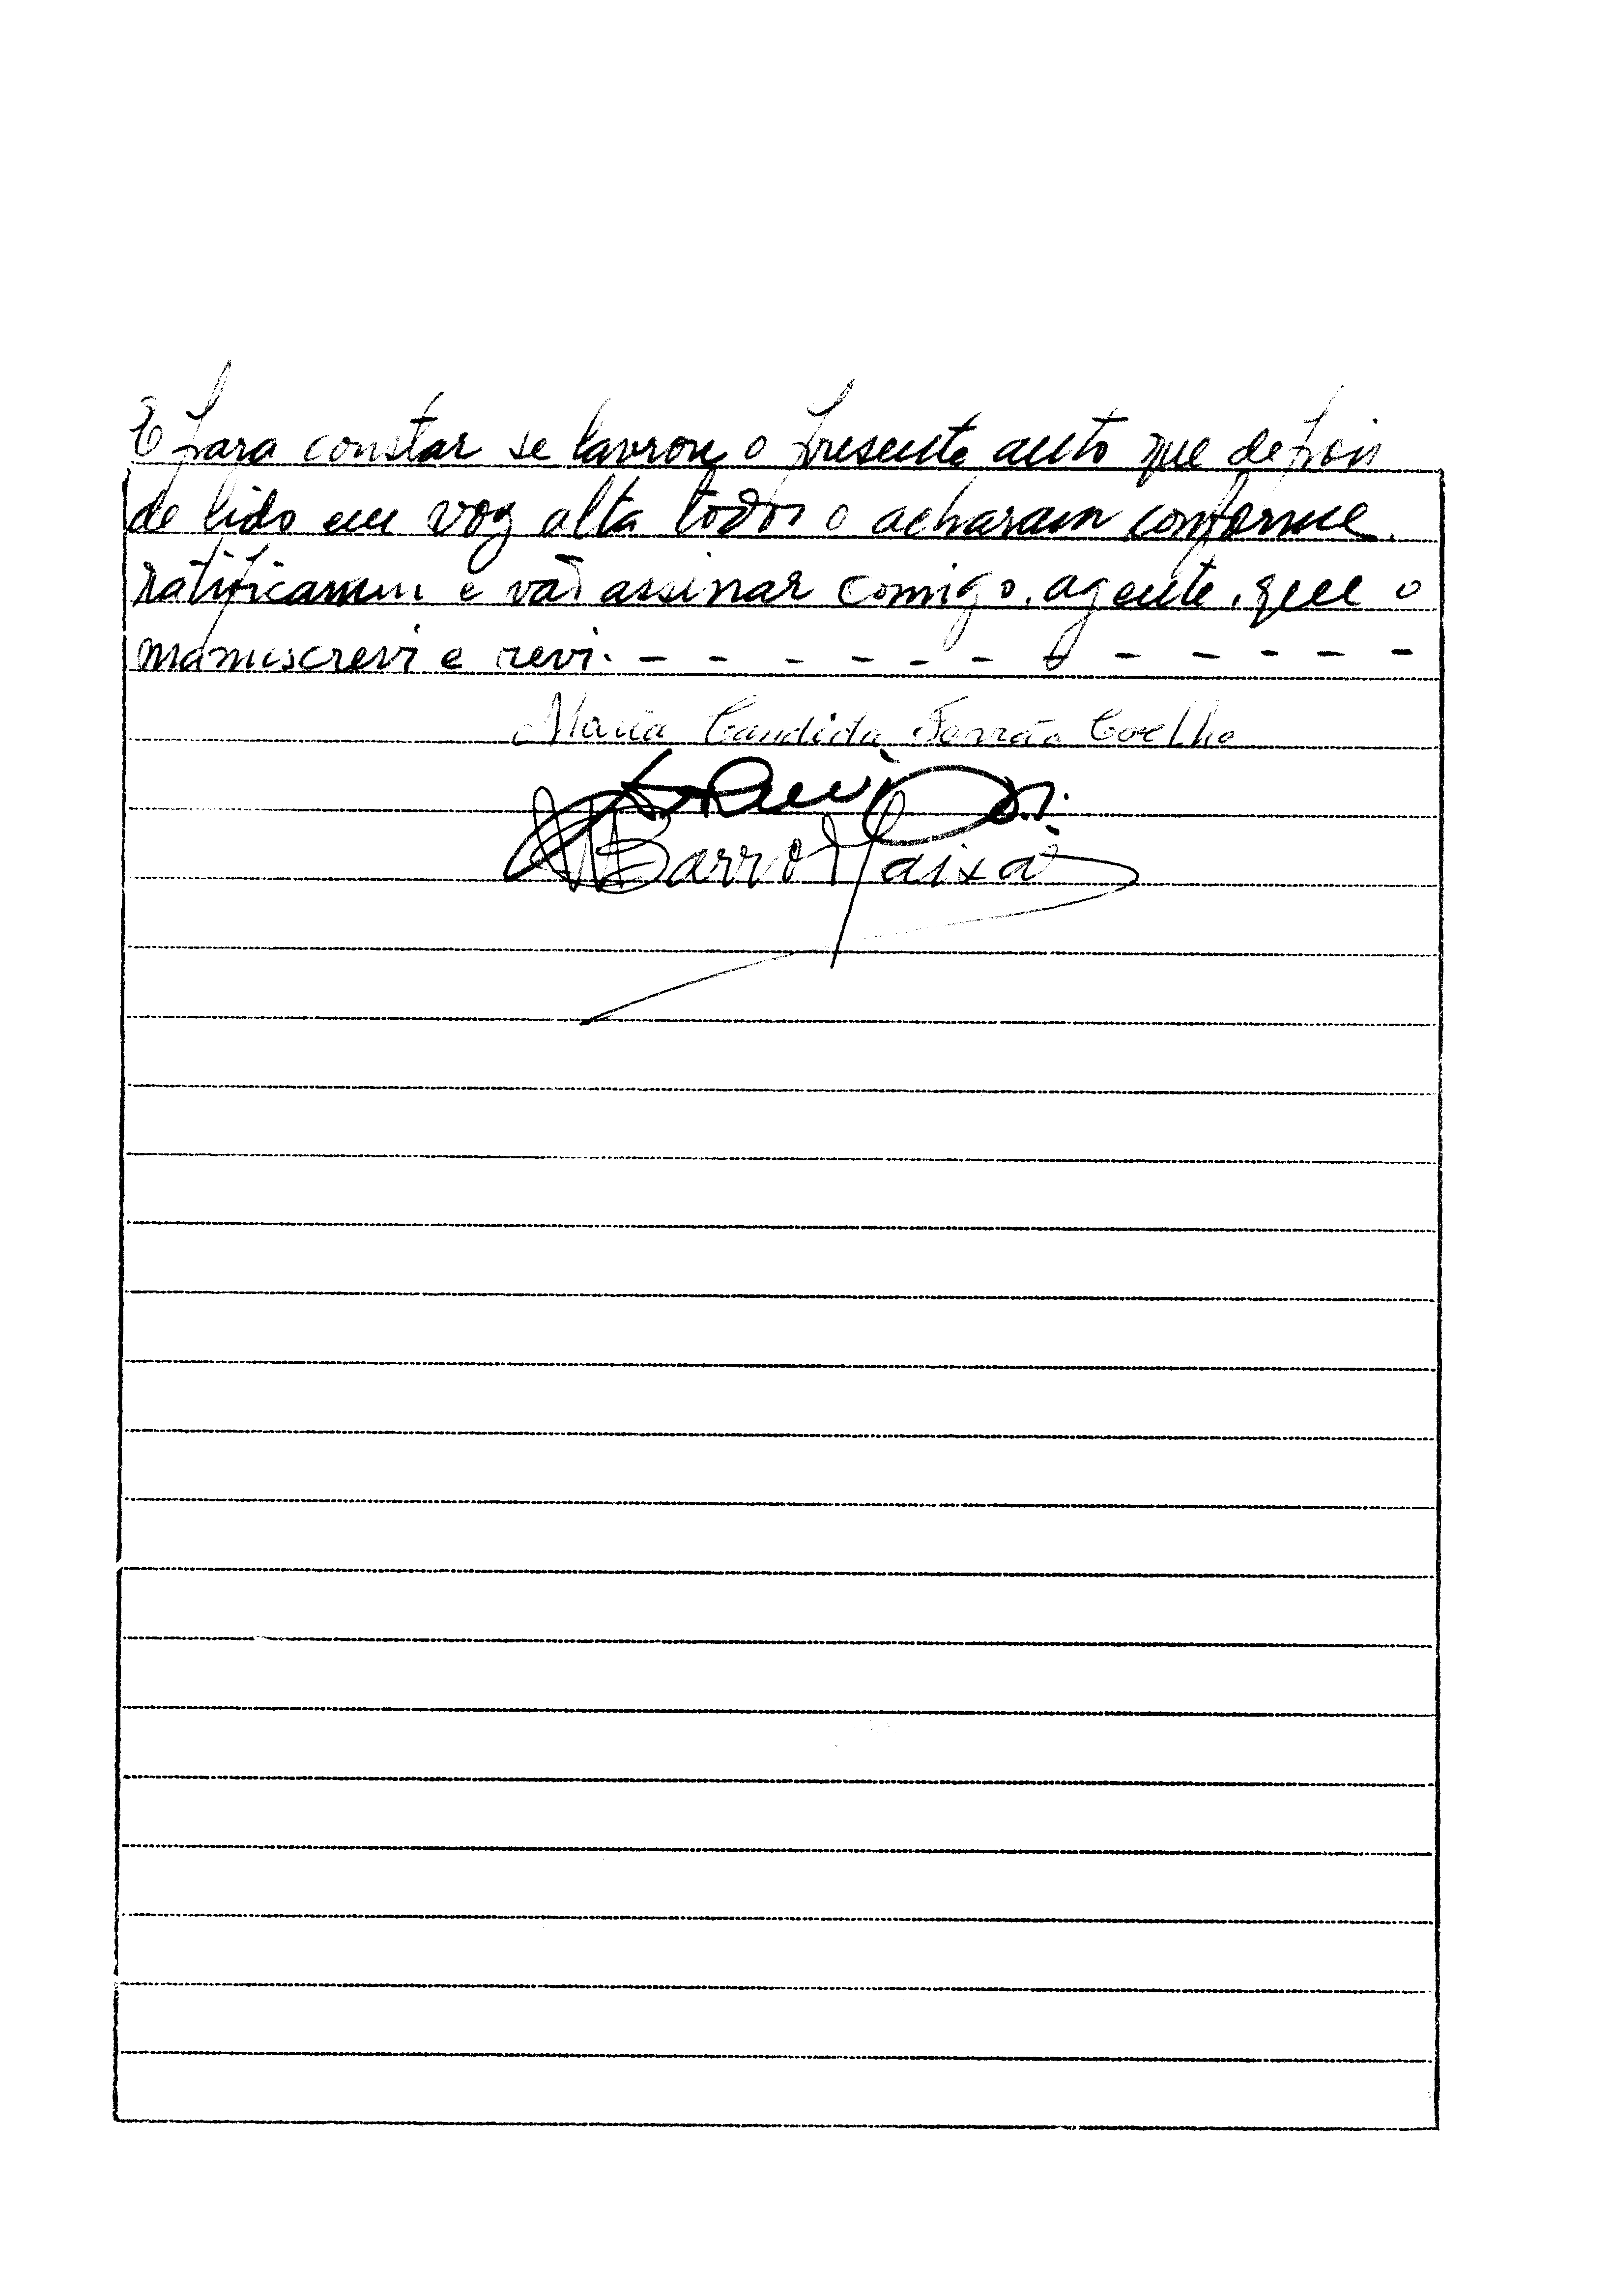 E para constar se lavrou o presente auto que depois
de lido em voz alta todos o acharam conforme,
ratificaram e vão assinar comigo, agente, que o
manuscrevi e revi. - - - - - - - - - - - -
Maria Candida Serrão Coelho
Barro Paixão